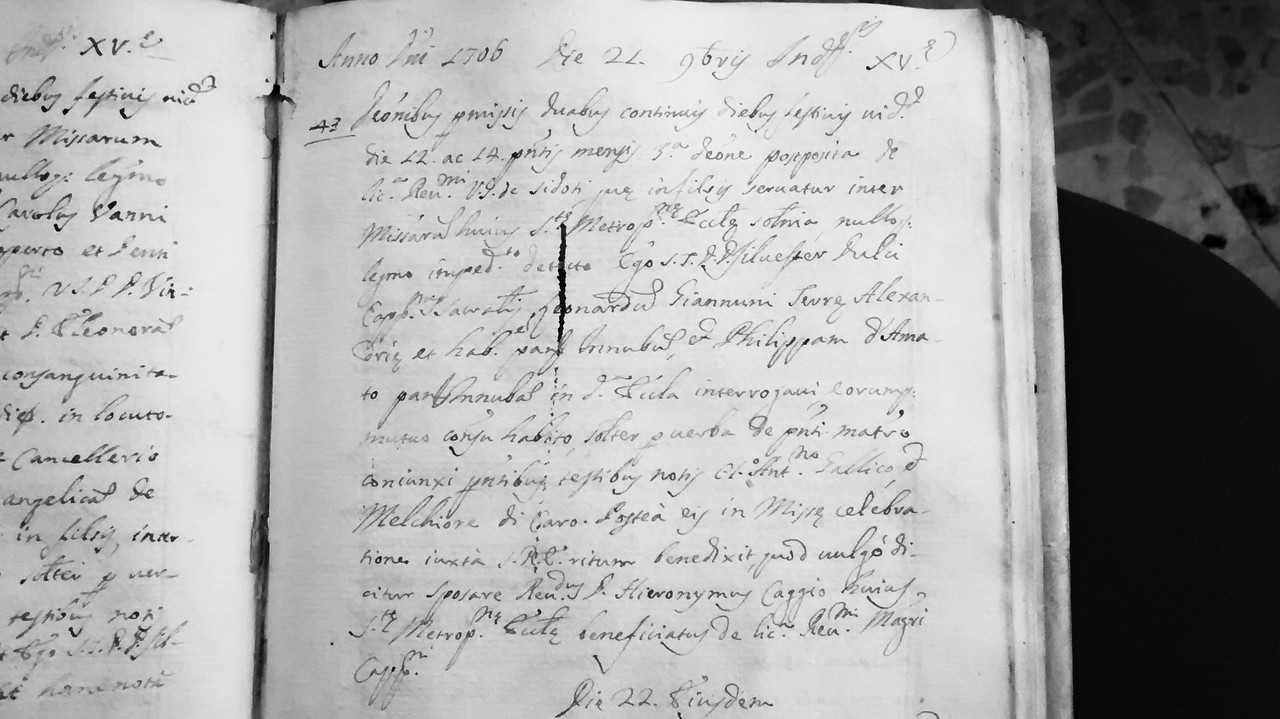 XV.e
diebus festivis vid.t
r Missarum
nullog: legmo
Carolus Vanni
aperto et
V.J.D.D. Vin-:
t D. Eleonera
consanguinita-
disp. in locuto-
t Cancellerio
angelica de
in filsis, inter-
solter p ver-
testibus noti
Ego S.T.D.D. Sil-
et hanc nota
Anno Dni 1706 Die 21. 9bris Indis. XV.e
43 Deonibus pmissis duabus continuis diebus festivis vid.t
die 12. ac 14. pntis mensis 3.a deone postposita de
lic.a Reu.mi V.J.D. de Sidoti que in filsis servatur inter
Missaru huius S.te Metrop.ne Ecclę solnia, nullog:
legmo imped.to detecto Ego S.T.D.D. Silvester Dulci
Capp.nus Sacralis, Leonardu Giannuni Terrę Alexan-
drię et hab.e pan: Innubu, et Philippam d'Ama-
to pan: Innuba in d.a Eccla interrogavi eorumq:
mutuo consu habito, solter p verba de pnti matro
coniunxi pntibus testibus notis Cl. Ant.no Gallico, et
Melchiore di Caro. Posteà eis in Missę celebra-
tione iuxtà S.R.E. ritum benedixit, quod vulgò di-
citur sposare Reu.dus S.D. Hieronymus Caggio huius
S.te Metrop.ne Ecclę beneficiatus de lic.a Reu.mi Magri
Capp.ni
Die 22. Eiusdem